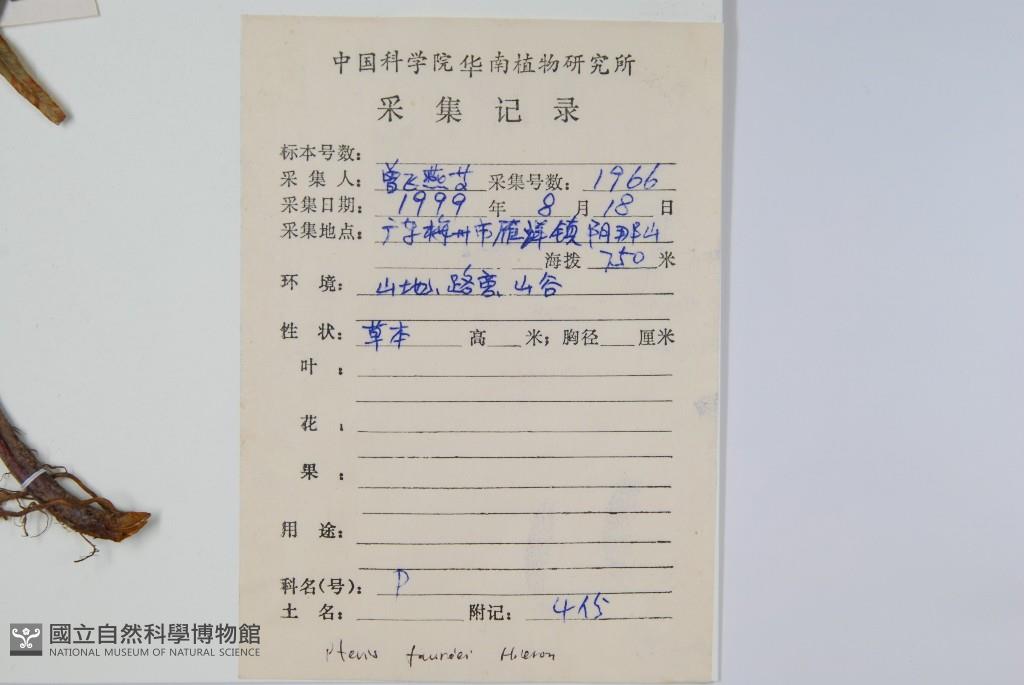 中国科学院华南植物研究所
采集记录
标本号数：
采集人：曾飞燕等 采集号数：1966
采集日期：1999年8月18日
采集地点：广东梅州市雁洋镇阴那山
海拨 750 米
环境：山地、路旁、山谷
性状：草本 高 米；胸径 厘米
叶：
花：
果：
用途：
科名(号)：P
土名： 附记：4份
Pteris fauriei Hieron
國立自然科學博物館
NATIONAL MUSEUM OF NATURAL SCIENCE